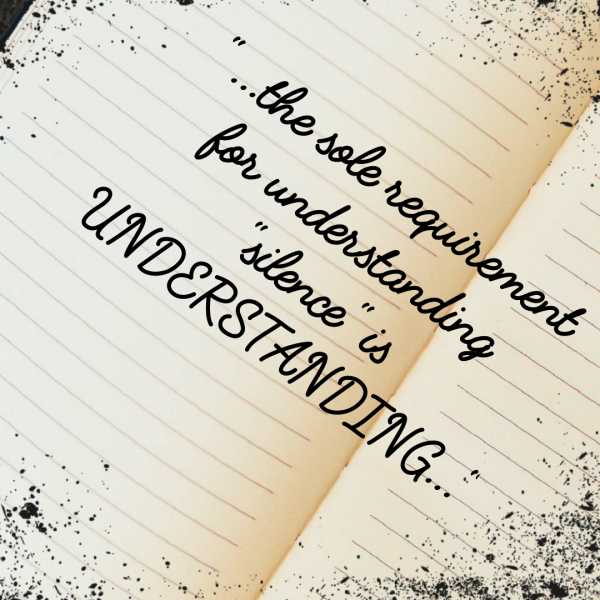 "
...the sole requirement
for understanding
"silence" is
UNDERSTANDING..."